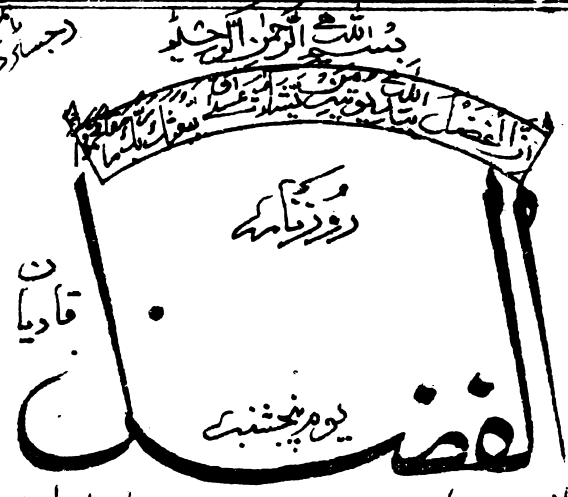 بسم اللہ الرحمن الرحیم
ان الفضل بید اللہ یوتیہ من یشاء عسی ان یبعثک ربک مقاما محمودا
روزنامہ
قادیان
الفضل
یوم پنجشنبہ